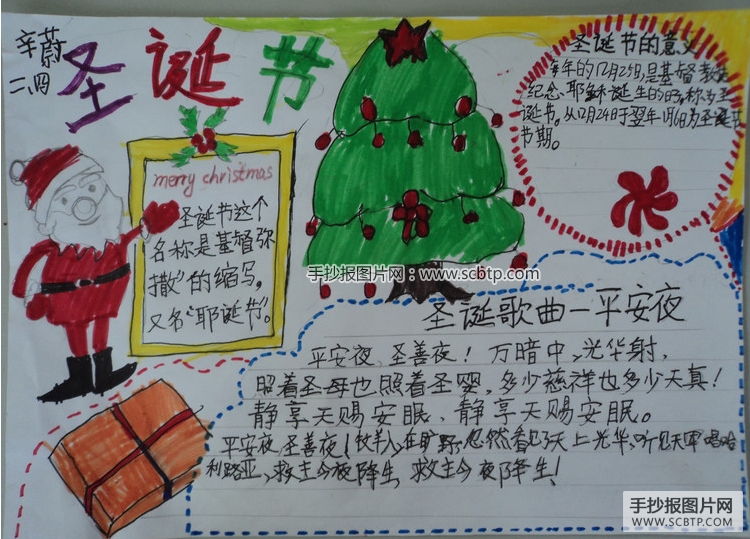 辛蔚
二、四
圣诞节
merry christmas
圣诞节这个
名称是基督弥
撒”的缩写，
又名“耶诞节”。
圣诞节的意义
每年的12月25日，是基督教徒
纪念、耶稣诞生的日子，称为圣
诞节。从12月24日于翌年1月6日为圣诞节
节期。
手抄报图片网：www.scbtp.com
圣诞歌曲—平安夜
平安夜、圣善夜！万暗中，光华射，
照着圣母也照着圣婴，多少慈祥也多少天真！
静享天赐安眠、静享天赐安眠。
平安夜、圣善夜！牧羊人，在旷野，忽然看见了天上光华、听见天军唱哈
利路亚、救主今夜降生、救主今夜降生！
手抄报图片网
WWW.SCBTP.COM